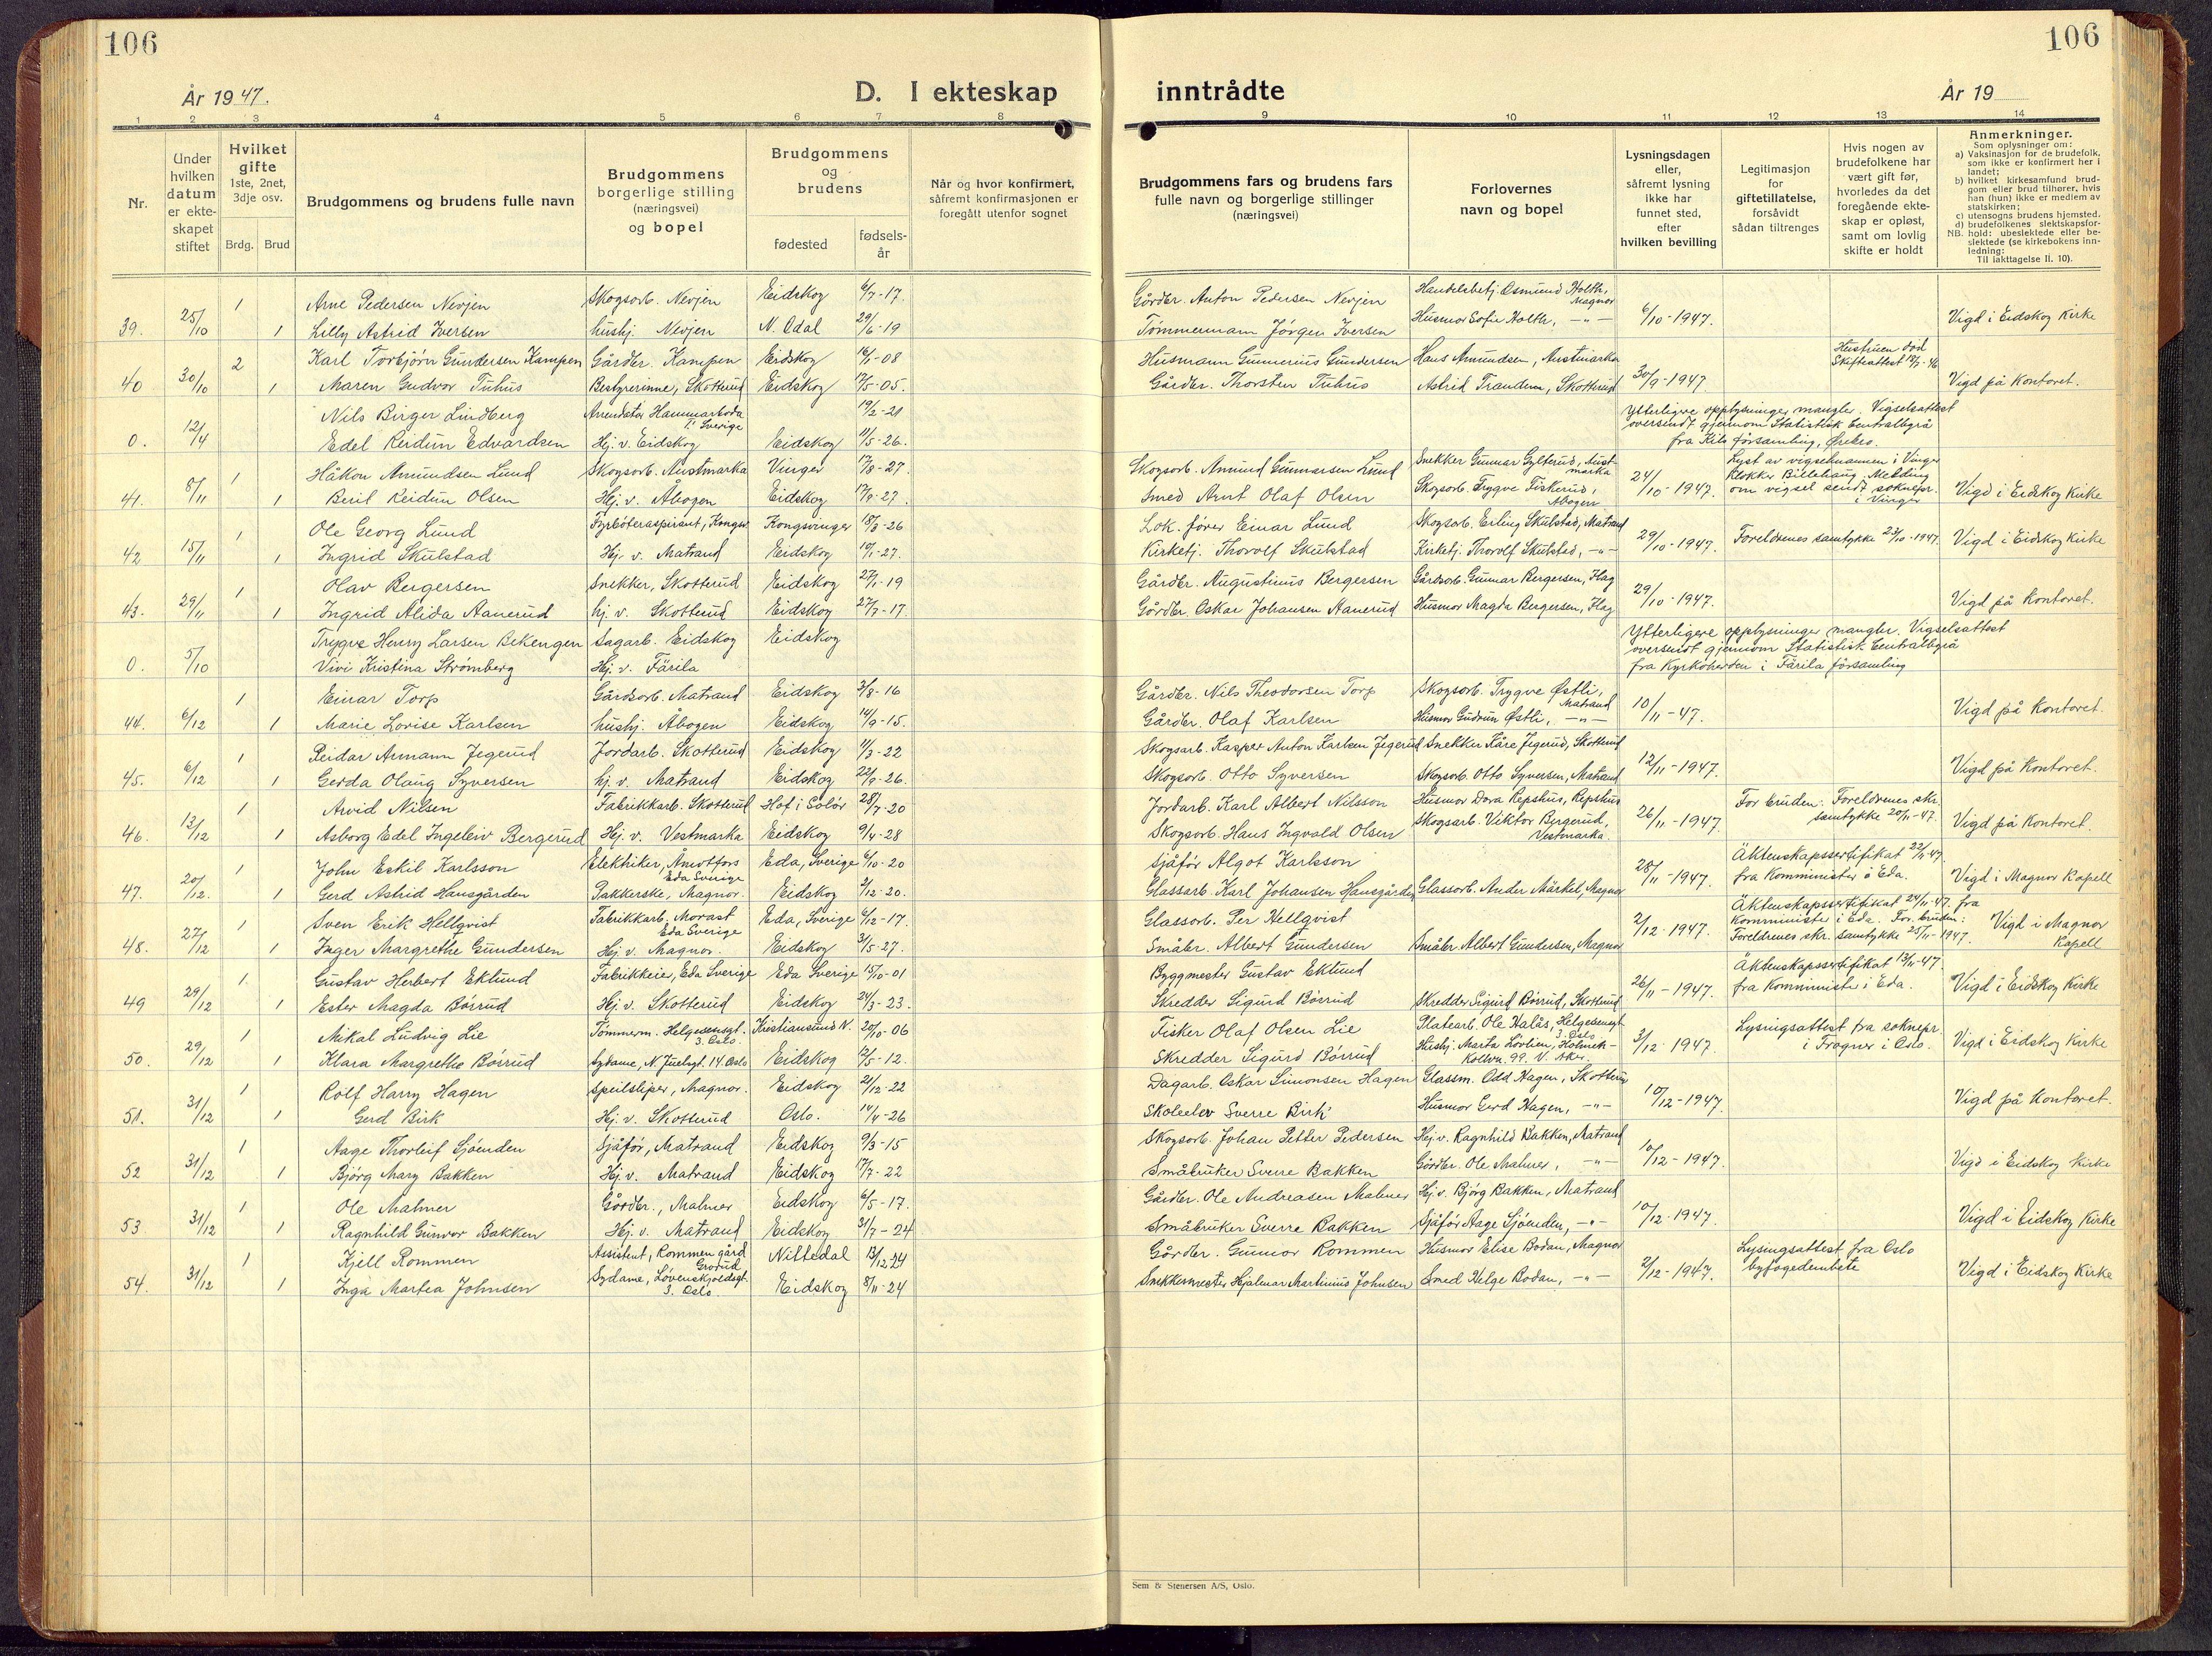 106
106
År 1947.
D. I ekteskap inntrådte
År 19
1 2 3 4 5 6 7 8 9 10 11 12 13 14
Nr.
Under hvilken datum er ekteskapet stiftet
Hvilket gifte 1ste, 2net, 3dje osv.
Brdg. Brud
Brudgommens og brudens fulle navn
Brudgommens borgerlige stilling (næringsvei) og bopel
Brudgommens og brudens
fødested
fødselsår
Når og hvor konfirmert, såfremt konfirmasjonen er foregått utenfor sognet
Brudgommens fars og brudens fars fulle navn og borgerlige stillinger (næringsvei)
Forlovernes navn og bopel
Lysningsdagen eller, såfremt lysning ikke har funnet sted, efter hvilken bevilling
Legitimasjon for giftetillatelse, forsåvidt sådan tiltrenges
Hvis nogen av brudefolkene har vært gift før, hvorledes da det foregående ekteskap er opløst, samt om lovlig skifte er holdt
Anmerkninger.
Som oplysninger om:
a) Vaksinasjon for de brudefolk, som ikke er konfirmert her i landet;
b) hvilket kirkesamfund brudgom eller brud tilhører, hvis han (hun) ikke er medlem av statskirken;
c) utensogns brudens hjemsted.
d) brudefolkenes slektskapsforhold: ubeslektede eller beslektede (se kirkebokens innledning:
NB.
Til iakttagelse II. 10).
1 Arne Pedersen Nevjen Skogsarb. Nevjen Eidskog 6/7-17. Gårdbr. Anton Pedersen Nevjen Handelsbetj. Osmund Holth, Magnor
39. 25/10 1 Lilly Astrid Iversen hushj. Nevjen N. Odal 29/6-19 Tømmermann Jørgen Iversen Husmor Sofie Holth, -"- 6/10-1947. Vigd i Eidskog Kirke
2 Karl Torbjørn Gundersen Kampen Gårdbr. Kampen Eidskog 16/1-08 Husmann Gunnerius Gundersen Hans Amundsen, Austmarka Hustruen død Skifteattest 12/7-46
40 30/10 1 Maren Gudvor Tuhus Bestyrerinne, Skotterud Eidskog 17/5-05. Gårdbr. Thorsten Tuhus Astrid Trandem, Skotterud 30/9-1947. Vigd på Kontoret.
Nils Birger Lindberg Arrendator Hammarboda 1. Sverige 19/2-21 Ytterligere opplysninger mangler. Vigselsattest
0. 12/4 Edel Reidun Edvardsen Hj. v. Eidskog Eidskog 11/5-26. oversendt gjennom Statistisk Centralbyrå
fra Kils församling, Örebro.
1 Håkon Amundsen Lund Skogsarb. Austmarka Vinger 17/8-27. Skogsarb. Amund Gunnarsen Lund Snekker Gunnar Gylterud, Austmarka Lyst av vigselsmannen i Vinger
41. 8/11 1 Beril Reidun Olsen Hj. v. Åbogen Eidskog 17/9-27. Smed Arnt Olaf Olsen Skogsarb. Trygve Fiskerud, Åbogen 24/10-1947. Klokker Bildshaug. Melding om vigsel sendt soknepr. i Vinger Vigd i Eidskog Kirke
1 Ole Georg Lund Fyrbøteraspirant, Kongsv Kongsvinger 18/3-26 Lok. fører Einar Lund Skogsarb. Erling Skulstad, Matrand
42 15/11 1 Ingrid Skulstad Hj. v. Matrand Eidskog 10/1-27. Kirketj. Thorolf Skulstad Kirketj. Thorolf Skulstad, -"- 29/10-1947. Foreldrenes samtykke 23/10-1947. Vigd i Eidskog Kirke
1 Olav Bergersen Snekker, Skotterud Eidskog 27/1-19 Gårdbr. Augustinus Bergersen Gårdsarb. Gunnar Bergersen, Flag
43. 29/11 1 Ingrid Alida Aanerud hj. v. Skotterud Eidskog 27/7-17. Gårdbr. Oskar Johansen Aanerud Husmor Magda Bergersen, Flag 29/10-1947. Vigd på Kontoret.
Trygve Henry Larsen Bekengen Sagarb. Eidskog Eidskog Ytterligere opplysninger mangler. Vigselsattest
0. 5/10 Vivi Kristina Strömberg Hj. v. Färila oversendt gjennom Statistisk Centralbyrå
fra Kyrkoherden i Färila församling
1 Einar Torp Gårdsarb. Matrand Eidskog 3/8-16 Gårdbr. Nils Theodorsen Torp Skogsarb. Trygve Østli, Matrand
44. 6/12 1 Marie Lovise Karlsen hushj. Åbogen Eidskog 14/9-15. Gårdbr. Olaf Karlsen Husmor Gudrun Østli, -"- 10/11-47. Vigd på Kontoret.
1 Reidar Armann Jegerud Jordarb. Skotterud Eidskog 11/3-22 Skogsarb. Kasper Anton Karlsen Jegerud Snekker Kåre Jegerud, Skotterud
45. 6/12 1 Gerda Olaug Syversen hj. v. Matrand Eidskog 22/9-26. Skogsarb. Otto Syversen Skogsarb. Otto Syversen, Matrand 12/11-1947. Vigd på Kontoret.
1 Arvid Nilsen Fabrikkarb. Skotterud Hof i Solør 28/7-20 Jordarb. Karl Albert Nilsson Husmor Dora Repshus, Repshus For bruden: Foreldrenes skr.
46. 13/12 1 Asborg Edel Ingeleiv Bergerud Hj. v. Vestmarka Eidskog 9/4-28 Skogsarb. Hans Ingvald Olsen Skogsarb. Viktor Bergerud, Vestmarka. 26/11-1947. samtykke 20/11-47. Vigd på Kontoret.
1 John Eskil Karlsson Elektriker, Åmotfors Eda Sverige Eda, Sverige 6/10-20 Sjåfør Algot Karlsson Äktenskapssertifikat 22/11-47.
47. 20/12. 1 Gerd Astrid Hansgården Pakkerske, Magnor. Eidskog 2/12-20. Glassarb. Karl Johansen Hansgården Glassarb. Ander Märkel, Magnor 28/11-1947. fra Komminister i Eda. Vigd i Magnor Kapell
1 Sven Erik Hellqvist Fabrikkarb. Morast Eda Sverige Eda, Sverige 6/12-17. Glassarb. Per Hellqvist Äktenskapssertifikat 24/11-47. fra
48. 27/12 1 Inger Margrethe Gundersen Hj. v. Magnor. Eidskog 31/5-27. Småbr. Albert Gundersen Småbr Albert Gundersen, Magnor 2/12-1947. Komminister i Eda. For bruden: Foreldrenes skr. samtykke 25/11-1947. Vigd i Magnor Kapell
1. Gustav Herbert Eklund Fabrikkeier, Eda Sverige Eda Sverige 15/10-01 Byggmester Gustav Eklund Äktenskapssertifikat 13/11-47.
49 29/12 1 Ester Magda Børrud Hj. v. Skotterud Eidskog 24/3-23. Skredder Sigurd Børrud Skredder Sigurd Børrud, Skotterud 26/11-1947. fra Komminister i Eda. Vigd i Eidskog Kirke
1 Mikal Ludvig Lie Tømmerm. Helgesensgt. 3. Oslo. Kristiansund N. 20/10-06 Fisker Olaf Olsen Lie Platearb. Ole Halås, Helgesensgt 3. Oslo Lysingsattest fra soknepr.
50. 29/12 1 Klara Margrethe Børrud Sydame, N. Juelsgt. 14. Oslo Eidskog 12/5-12. Skredder Sigurd Børrud Hushj. Marta Løvlien, 3/12-1947. i Frogner i Oslo. Vigd i Eidskog Kirke
1 Rolf Harry Hagen Speilsliper, Magnor. Eidskog 21/12-22 Dagarb. Oskar Simonsen Hagen Glassm. Odd Hagen, Skotterud
51. 31/12 1 Gerd Birk Hj. v. Skotterud Oslo. 14/4-26 Skoleelev Sverre Birk Husmor Gerd Hagen, -"- 10/12-1947. Vigd på Kontoret.
1 Aage Thorleif Sjøenden Sjåfør, Matrand Eidskog 9/3-15 Skogsarb. Johan Petter Pedersen Hj. v. Ragnhild Bakken, Matrand
52 31/12 1 Bjørg Mary Bakken Hj. v. Matrand Eidskog 17/7-22 Småbruker Sverre Bakken Gårdbr. Ole Malmer, -"- 10/12-1947. Vigd i Eidskog Kirke
1 Ole Malmer Gårdbr., Malmer Eidskog 6/5-17. Gårdbr. Ole Andreasen Malmer Hj. v. Bjørg Bakken, Matrand
53 31/12 1 Ragnhild Gunvor Bakken Hj. v. Matrand Eidskog 31/7-24 Småbruker Sverre Bakken Sjåfør Aage Sjøenden, -"- 10/12-1947. Vigd i Eidskog Kirke
1 Kjell Rommen Assistent, Rommen gård Grorud Nittedal 13/12-24 Gårdbr. Gunnar Rommen Husmor Elise Bodan, Magnor Lysingsattest fra Oslo
54. 31/12 1 Inga Martea Johnsen Sydame, Løvenskjoldsgt. 3. Oslo Eidskog 8/11-24 Snekkermester Hjalmar Martinius Johnsen Smed Helge Bodan, -"- 2/12-1947. byfogedembete Vigd i Eidskog Kirke
Sem & Stenersen A/S, Oslo.